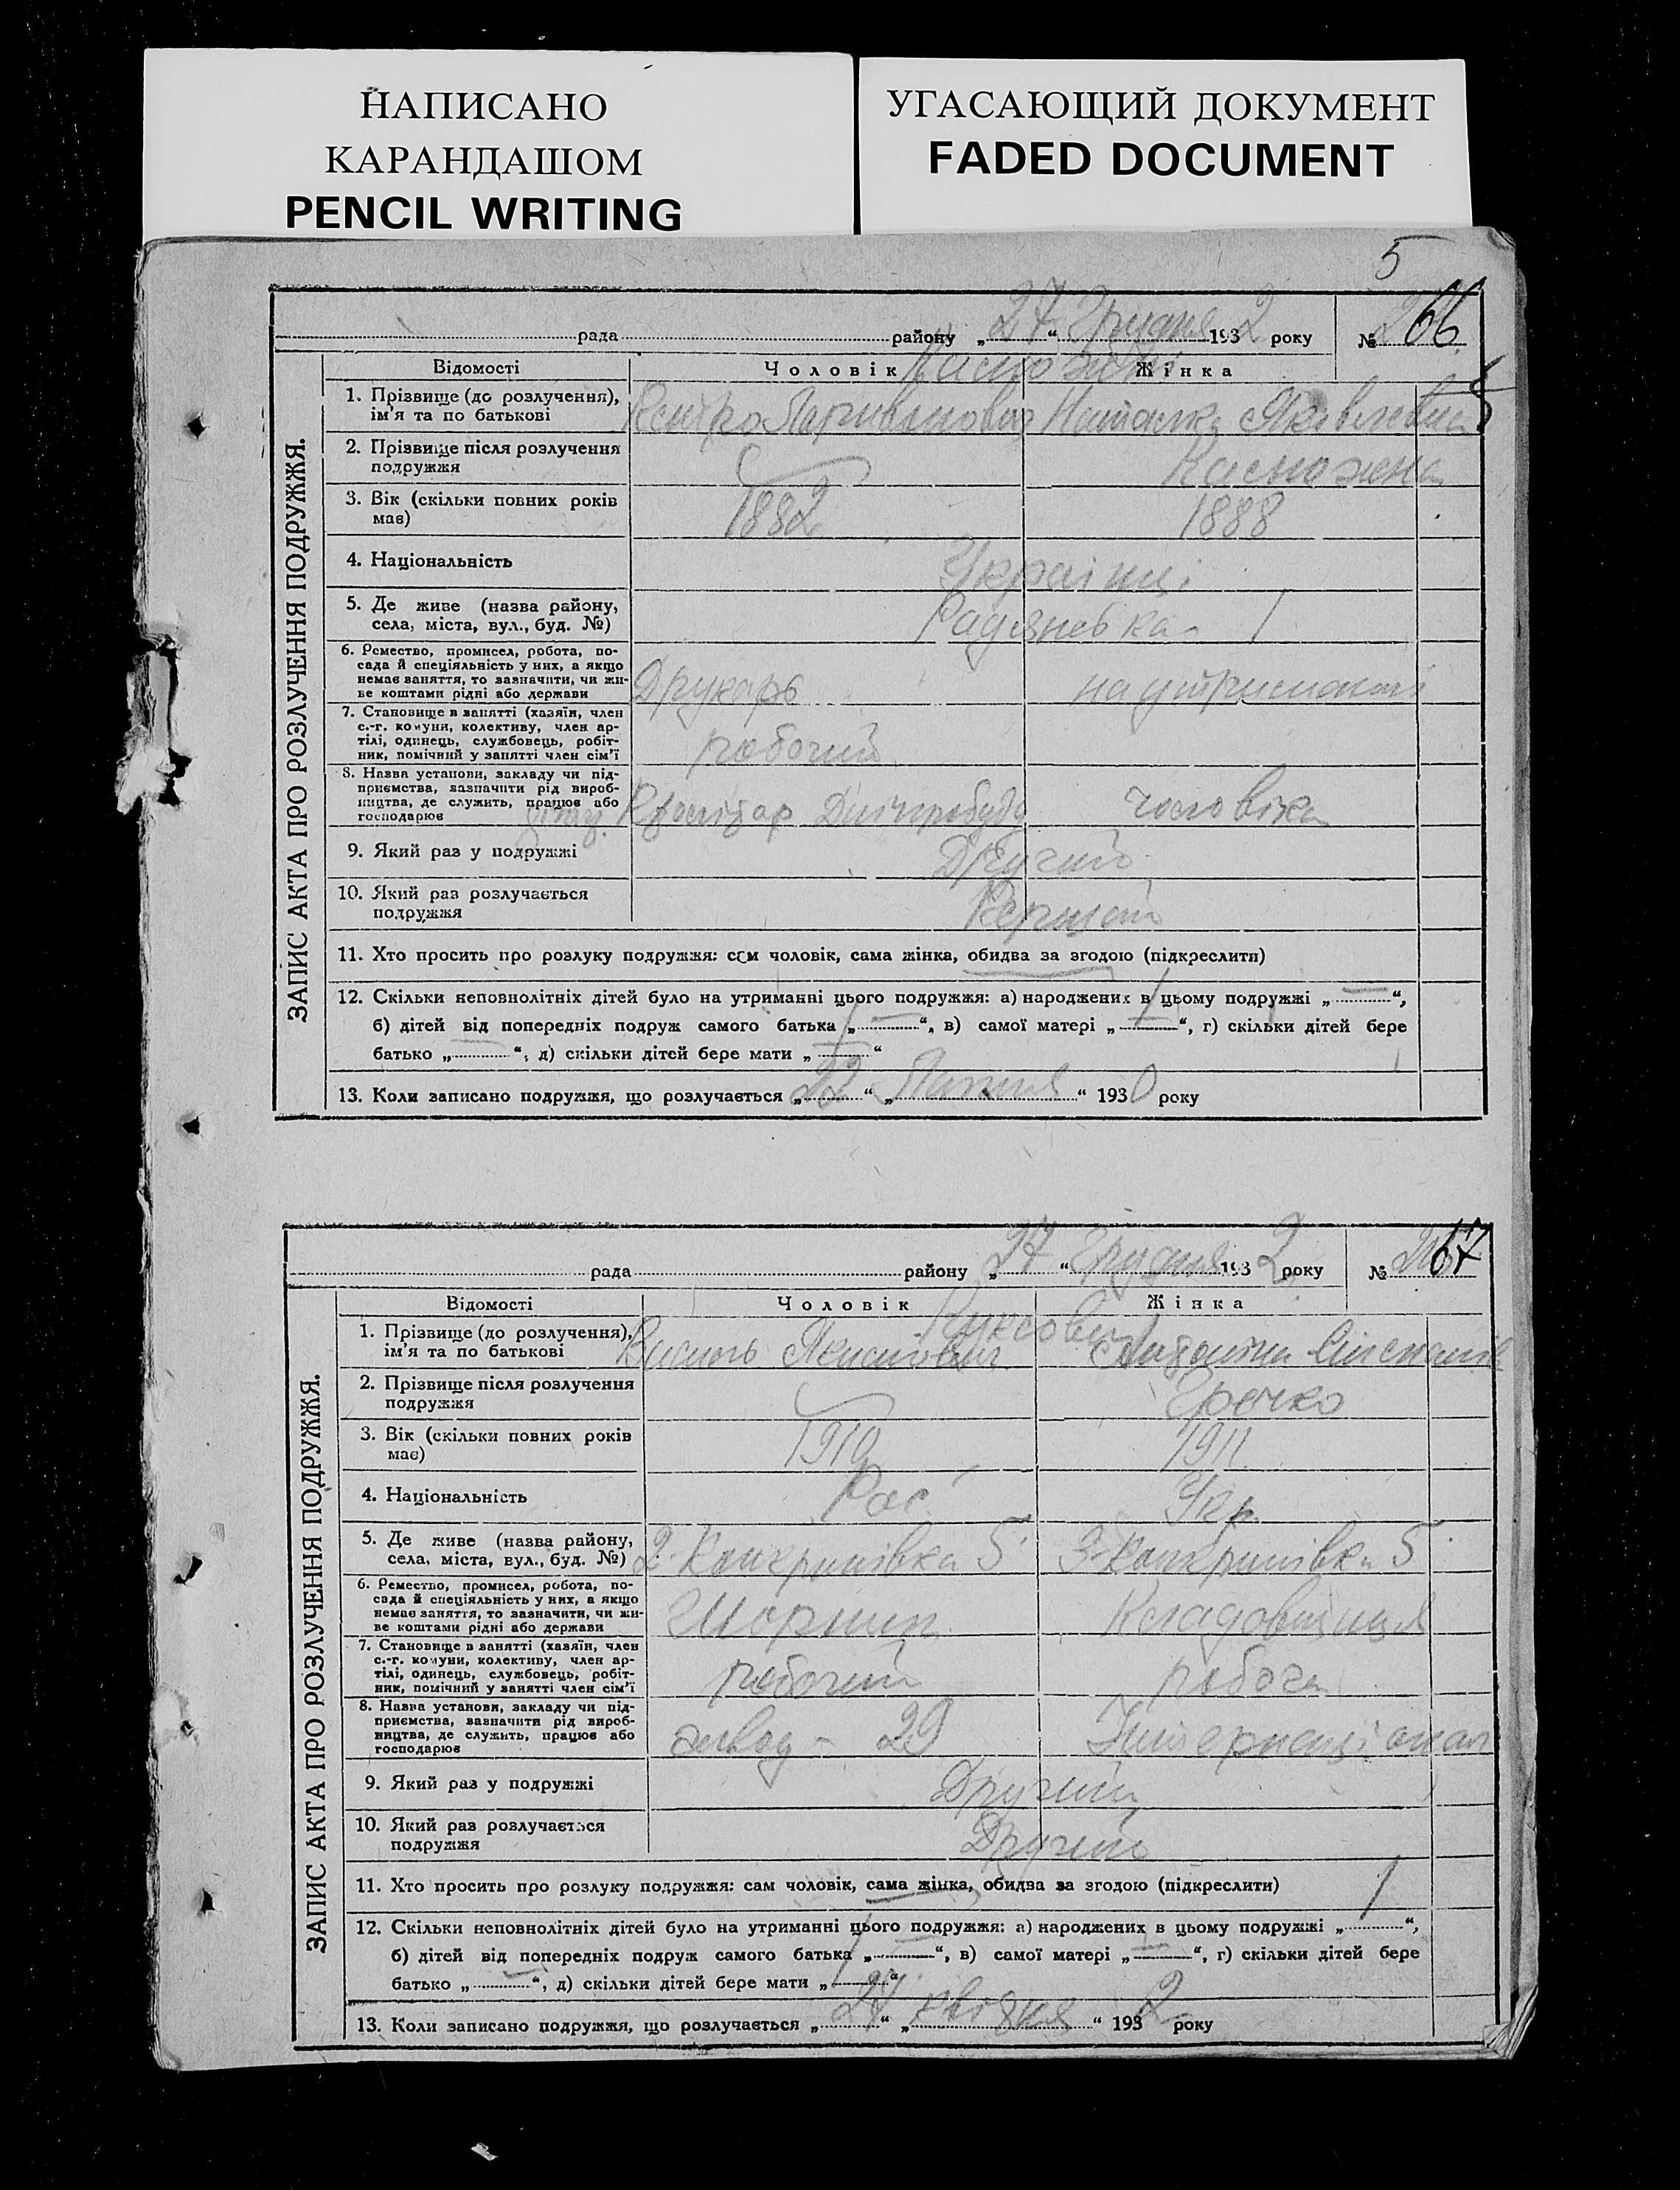 НАПИСАНО
КАРАНДАШОМ
PENCIL WRITING
УГАСАЮЩИЙ ДОКУМЕНТ
FADED DOCUMENT
5
рада района „27“ Грудня 1932 року № 66
ЗАПИС АКТА ПРО РОЗЛУЧЕННЯ ПОДРУЖЖЯ.
Відомості Чоловік Жінка
1. Прізвище (до розлучення), ім'я та по батькові Наталка Яковлевна
2. Прізвище після розлучення подружжя
3. Вік (скільки повних років має) 1882 1888
4. Національність Українці
5. Де живе (назва району, села, міста, вул., буд. №) Радянська 1
6. Ремество, промисел, робота, по-
сада й спеціяльність у них, а якщо
немає заняття, то зазначити, чи жи-
ве коштами рідні або держави Друкарь на утриманні
7. Становище в занятті (хазяїн, член
с.-г. комуни, колективу, член ар-
тілі, одинець, службовець, робіт-
ник, помічний у занятті член сім'ї рабочий
8. Назва установи, закладу чи під-
приємства, зазначити рід вироб-
ництва, де служить, працює або
господарює Дніпробуду чоловіка
9. Який раз у подружжі Другий
10. Який раз розлучається
подружжя Перший
11. Хто просить про розлуку подружжя: сам чоловік, сама жінка, обидва за згодою (підкреслити)
12. Скільки неповнолітніх дітей було на утриманні цього подружжя: а) народжених в цьому подружжі „ — “,
б) дітей від попередніх подруж самого батька „ — “, в) самої матері „ 1 “, г) скільки дітей бере
батько „ — “, д) скільки дітей бере мати „ 1 “
13. Коли записано подружжя, що розлучається „22“ „Липня“ 1930 року
рада району „27“ Грудня 1932 року № 67
ЗАПИС АКТА ПРО РОЗЛУЧЕННЯ ПОДРУЖЖЯ.
Відомості Чоловік Жінка
1. Прізвище (до розлучення),
ім'я та по батькові
2. Прізвище після розлучення
подружжя Гречко
3. Вік (скільки повних років
має) 1910 1911
4. Національність Рос. Укр.
5. Де живе (назва району,
села, міста, вул., буд. №) 2 Канкринівка 5 3-Канкринівка 5
6. Ремество, промисел, робота, по-
сада й спеціяльність у них, а якщо
немає заняття, то зазначити, чи жи-
ве коштами рідні або держави Шорник Кладовщиця
7. Становище в занятті (хазяїн, член
с.-г. комуни, колективу, член ар-
тілі, одинець, службовець, робіт-
ник, помічний у занятті член сім'ї рабочий рабоча
8. Назва установи, закладу чи під-
приємства, зазначити рід вироб-
ництва, де служить, працює або
господарює завод - 29 Інтернаціонал
9. Який раз у подружжі Другий
10. Який раз розлучається
подружжя Другий
11. Хто просить про розлуку подружжя: сам чоловік, сама жінка, обидва за згодою (підкреслити)
12. Скільки неповнолітніх дітей було на утриманні цього подружжя: а) народжених в цьому подружжі „ 1 “,
б) дітей від попередніх подруж самого батька „ — “, в) самої матері „ — “, г) скільки дітей бере
батько „ — “, д) скільки дітей бере мати „ 1 “
13. Коли записано подружжя, що розлучається „27“ „квітня“ 1932 року